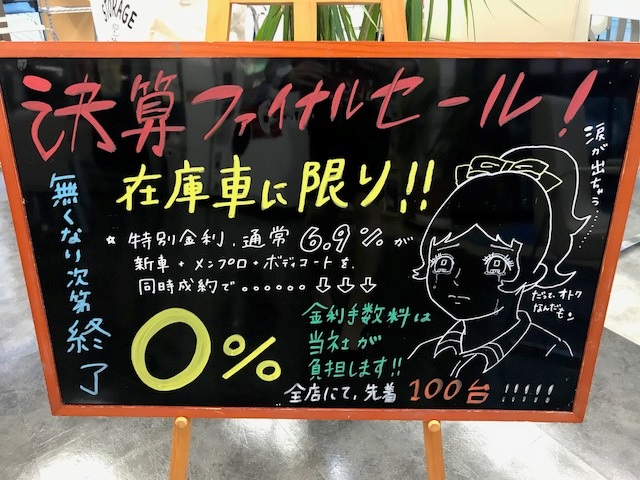 STORAGE
決算ファイナルセール!
涙が出ちゃう……
在庫車に限り!!
無くなり次第終了
☆ 特別金利、通常 6.9%が
新車+メンプロ+ボディコートを、
同時成約で。。。。。。↓↓↓
だって、オトク
なんだモン
0%
金利手数料は
当社が
負担します!!
全店にて、先着 100台!!!!!